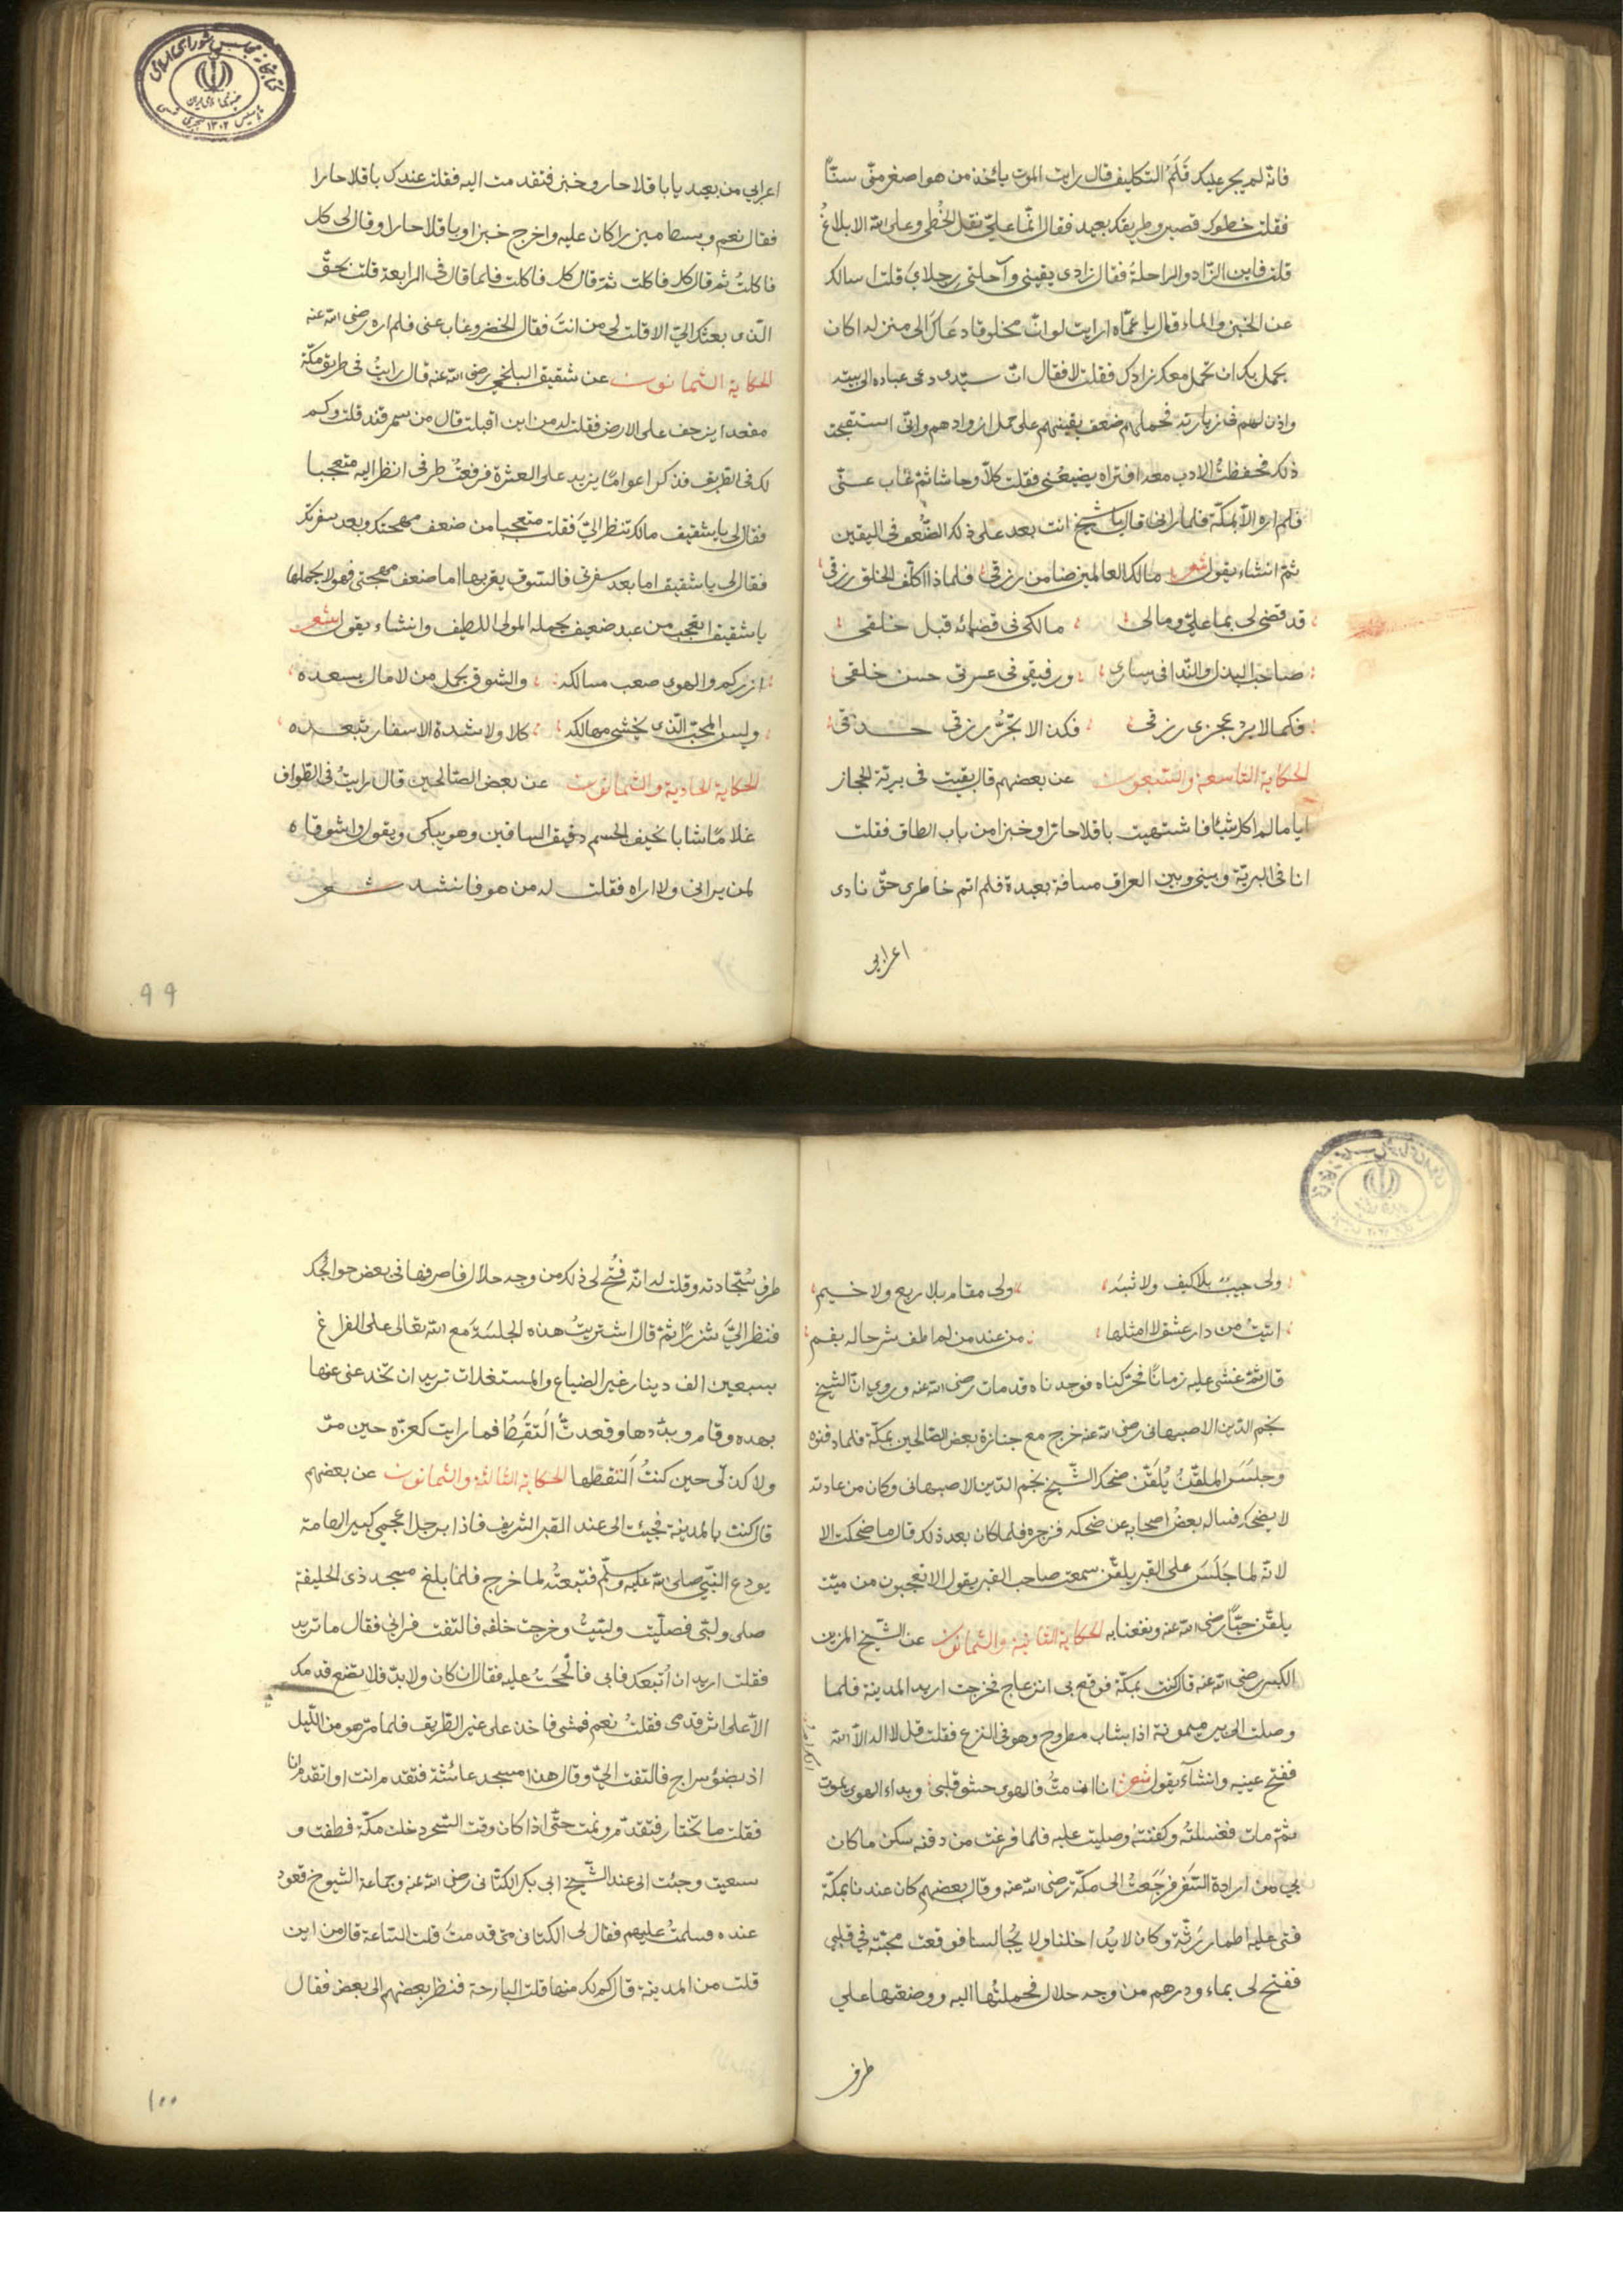 فانه لم يجر عليك قلم التكليف قال رايت الموت ياخذ من هو اصغر منى سنا
فقلت خطوك قصير وطريقك بعيد فقال انما على نقل الخطى وعلى الله الابلاغ
قلت فاين الزاد والراحلة فقال زادى يقينى وراحلتى رجلاى قلت اسالك
عن الخبز والماء قال يا عماه ارايت لو ان مخلوقا دعاك الى منزله اكان
يجمل بك ان تحمل معك زادك فقلت لا فقال ان سيدى دعى عباده الى بيته
واذن لهم فى زيارته فحملهم ضعف يقينهم على حمل ازوادهم وانى استقبحت
ذلك فحفظت الادب معه افتراه يضيعنى فقلت كلا وحاشا ثم غاب عنى
فلم اره الا بمكة فلما رانى قال يا شيخ انت بعد على ذلك الضعف فى اليقين
ثم انشاء يقول شعر مالك العالمين ضامن رزقى فلماذا اكلف الخلق رزقى
قد قضى لى بما على ومالى مالكى فى قضائه قبل خلقى
صاحب البذل والندا فى يسارى ورفيقى فى عسرتى حسن خلقى
فكما لا يرد عجزى رزقى فكذا لا يجر رزقى حذقى
الحكاية التاسعة والسبعون عن بعضهم قال بقيت فى برية الحجاز
اياما لم اكل شيئا فاشتهيت باقلا حارا وخبزا من باب الطاق فقلت
انا فى البرية وبينى وبين العراق مسافة بعيدة فلم اتم خاطرى حتى نادى
اعرابى
اعرابى من بعيد يا باقلا حار وخبز فتقدمت اليه فقلت عندك باقلا حارا
فقال نعم وبسط ميزرا كان عليه واخرج خبزا وباقلا حارا وقال لى كل
فاكلت ثم قال كل فاكلت ثم قال كل فاكلت فلما قال فى الرابعة قلت بحق
الذى بعثك الى الا قلت لى من انت فقال الخضر وغاب عنى فلم اره رضى الله عنه
الحكاية الثمانون عن شقيق البلخى رضى الله عنه قال رايت فى طريق مكة
مقعدا يزحف على الارض فقلت له من اين اقبلت قال من سمرقند قلت وكم
لك فى الطريق فذكر اعواما يزيد على العشرة فرفعت طرفى انظر اليه متعجبا
فقال لى يا شقيق مالك تنظر الى فقلت متعجبا من ضعف مهجتك وبعد سفرتك
فقال لى يا شقيق اما بعد سفرتى فالشوق يقربها اما ضعف مهجتى فمولا يحملها
يا شقيق اتعجب من عبد ضعيف يحمله المولى اللطيف وانشاء يقول شعر
ازوركم والهوى صعب مسالكه والشوق يحمل من لا مال يسعده
وليس المحب الذى يخشى مهالكه كلا ولا شدة الاسفار تبعده
الحكاية الحادية والثمانون عن بعض الصالحين قال رايت فى الطواف
غلاما شابا نحيف الجسم دقيق الساقين وهو يبكى ويقول واشوقاه
لمن يرانى ولا اراه فقلت له من هو فانشد شعر
۹۹
ولى حبيب بلا كيف ولا شبه ولى مقام بلا ربع ولا خيم
اتيت من دار عشق لا امثلها من عند من لم اطق شرحا له بفم
قال ثم غشى عليه زمانا فحركناه فوجدناه قد مات رضى الله عنه وروى ان الشيخ
نجم الدين الاصبهانى رضى الله عنه خرج مع جنازة بعض الصالحين بمكة فلما دفنوه
وجلس الملقن يلقن ضحك الشيخ نجم الدين الاصبهانى وكان من عادته
لا يضحك فساله بعض اصحابه عن ضحكه فزجره فلما كان بعد ذلك قال ما ضحكت الا
لانه لما جلس على القبر يلقن سمعت صاحب القبر يقول الا تعجبون من ميت
يلقن حيا رضى الله عنه ونفعنا به الحكاية الثانية والثمانون عن الشيخ المزين
الكبير رضى الله عنه قال كنت بمكة فوقع بى انزعاج فخرجت اريد المدينة فلما
وصلت الى بير ميمونة اذا بشاب مطروح وهو فى النزع فقلت قل لا اله الا الله
ففتح عينيه وانشآء يقول شعر انا ان مت فالهوى حشو قلبى وبداء الهوى يموت
ثم مات فغسلته وكفنته وصليت عليه فلما فرغت من دفنه سكن ما كان
بى من ارادة السفر فرجعت الى مكة رضى الله عنه وقال بعضهم كان عندنا بمكة
فتى عليه اطمار رثة وكان لا يداخلنا ولا يجالسنا فوقعت محبته فى قلبى
ففتح لى بماء ودرهم من وجه حلال فحملتها اليه ووضعتها على
طرف
طرف سجادته وقلت له انه فتح لى ذلك من وجه حلال فاصرفها فى بعض حوائجك
فنظر الى شزرا ثم قال اشتريت هذه الجلسة مع الله تعالى على الفراغ
بسبعين الف دينار غير الضياع والمستغلات تريد ان تخدعنى عنها
بهذه وقام وبددها وقعدت التقط فما رايت كعزه حين مر
ولا كذلى حين كنت التقطها الحكاية الثالثة والثمانون عن بعضهم
قال كنت بالمدينة فجيئت الى عند القبر الشريف فاذا برجل اعجمى كبير الهامة
يودع النبى صلى الله عليه وسلم فتبعته لما خرج فلما بلغ مسجد ذى الحليفة
صلى ولبى فصليت ولبيت وخرجت خلفه فالتفت فرانى فقال ما تريد
فقلت اريد ان اتبعك فابى فالححت عليه فقال ان كان ولا بد فلا تضع قدمك
الا على اثر قدمى فقلت نعم فمشى فاخذ على غير الطريق فلما مر هو من الليل
اذ بضؤ سراج فالتفت الى وقال هذا مسجد عائشة فتقدم انت او اتقدم انا
فقلت ما تختار فتقدم ونمت حتى اذا كان وقت السحر دخلت مكة فطفت و
سعيت وجئت الى عند الشيخ ابى بكر الكتانى رضى الله عنه وجماعة الشيوخ قعود
عنده فسلمت عليهم فقال لى الكتانى متى قدمت قلت الساعة قال من اين
قلت من المدينة قال كم لك منها قلت البارحة فنظر بعضهم الى بعض فقال
۱۰۰